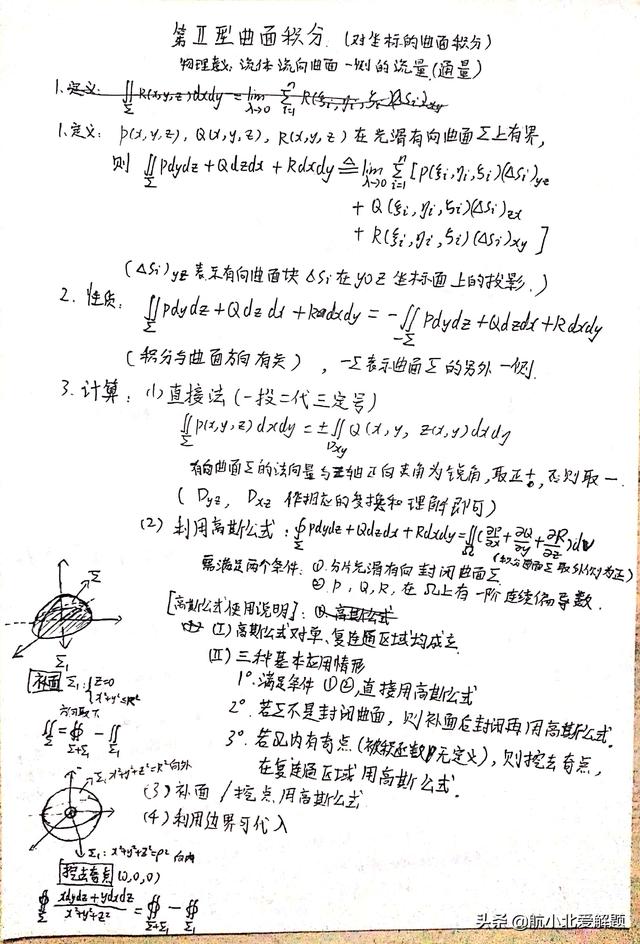 第Ⅱ型曲面积分.(对坐标的曲面积分)
物理意义:流体流向曲面一侧的流量(通量)
1.定义: ∬_Σ R(x,y,z)dxdy = lim_{λ→0} Σ_{i=1}^n R(ξi,ηi,ζi)(ΔSi)xy
1.定义: P(x,y,z), Q(x,y,z), R(x,y,z) 在光滑有向曲面Σ上有界,
则 ∬_Σ Pdydz+Qdzdx+Rdxdy ≜ lim_{λ→0} Σ_{i=1}^n [P(ξi,ηi,ζi)(ΔSi)yz
+ Q(ξi,ηi,ζi)(ΔSi)zx
+ R(ξi,ηi,ζi)(ΔSi)xy]
((ΔSi)yz 表示有向曲面块ΔSi在yoz坐标面上的投影.)
2. 性质: ∬_Σ Pdydz+Qdzdx+Rdxdy = -∬_{-Σ} Pdydz+Qdzdx+Rdxdy
(积分与曲面方向有关), -Σ表示曲面Σ的另外一侧.
3. 计算: (1) 直接法(一投二代三定号)
∬_Σ P(x,y,z)dxdy = ±∬_{Dxy} Q(x,y,z(x,y)dxdy
有向曲面Σ的法向量与z轴正向夹角为锐角,取正+,否则取一.
(Dyz, Dxz 作相应的变换和理解即可)
(2) 利用高斯公式: ∯_Σ Pdydz+Qdzdx+Rdxdy = ∭_Ω (∂P/∂x+∂Q/∂y+∂R/∂z)dV
(封闭曲面Σ取外侧为正)
需满足两个条件: ①.分片光滑有向封闭曲面Σ
②.P,Q,R,在Ω上有一阶连续偏导数.
[高斯公式使用说明]: ① 高斯公式
(Ⅰ) 高斯公式对单、复连通区域均成立.
(Ⅱ) 三种基本应用情形
1°.满足条件①②,直接用高斯公式
2°.若Σ不是封闭曲面,则补面后封闭再用高斯公式.
3°.若Ω内有奇点(被积函数无定义),则挖去奇点,
在复连通区域用高斯公式.
(3) 补面/挖点用高斯公式
(4) 利用边界可代入
Σ
Σ1
补面 Σ1: {z=0
x²+y²≤R²
方向取下
∬_Σ = ∯_{Σ+Σ1} - ∬_{Σ1}
Σ: x²+y²+z²=R² 向外
Σ1: x²+y²+z²=ρ² 向内
挖去奇点 (0,0,0)
∯_Σ (xdydz+ydxdz)/(x²+y²+z²) = ∯_{Σ+Σ1} - ∯_{Σ1}
头条 @航小北爱解题